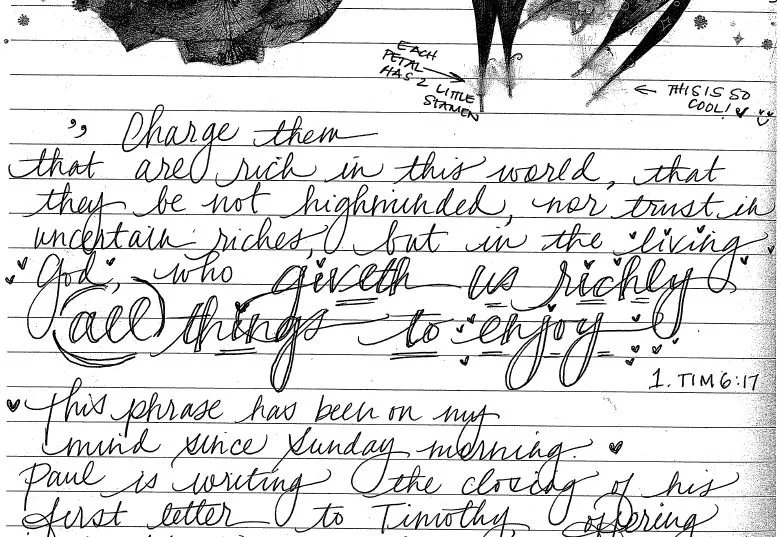 EACH
PETAL
HAS 2 LITTLE
STAMEN
← THIS IS SO
COOL!
" Charge them
that are rich in this world, that
they be not highminded, nor trust in
uncertain riches, but in the living
God, who giveth us richly
all things to enjoy
1. TIM 6:17
this phrase has been on my
mind since Sunday morning.
Paul is writing the closing of his
first letter to Timothy, offering